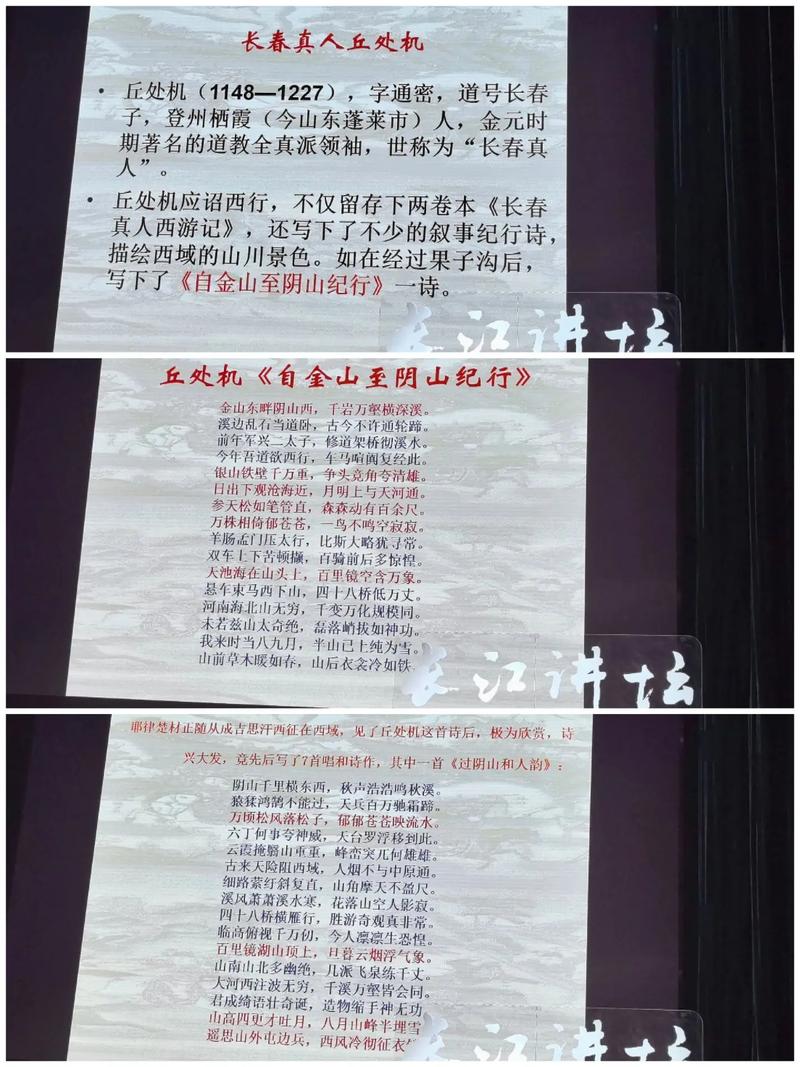 长春真人丘处机
• 丘处机（1148—1227），字通密，道号长春
子，登州栖霞（今山东蓬莱市）人，金元时
期著名的道教全真派领袖，世称为“长春真
人”。
• 丘处机应诏西行，不仅留存下两卷本《长春
真人西游记》，还写下了不少的叙事纪行诗，
描绘西域的山川景色。如在经过果子沟后，
写下了《自金山至阴山纪行》一诗。
长江讲坛
丘处机《自金山至阴山纪行》
金山东畔阴山西，千岩万壑横深溪。
溪边乱石当道卧，古今不许通轮蹄。
前年军兴二太子，修道架桥彻溪水。
今年吾道欲西行，车马喧阗复经此。
银山铁壁千万重，争头竞角夸清雄。
日出下观沧海近，月明上与天河通。
参天松如笔管直，森森动有百余尺。
万株相倚郁苍苍，一鸟不鸣空寂寂。
羊肠孟门压太行，比斯大略犹寻常。
双车上下苦顿撷，百骑前后多惊惶。
天池海在山头上，百里镜空含万象。
悬车束马西下山，四十八桥低万丈。
河南海北山无穷，千变万化规模同。
未若兹山太奇绝，磊落峭拔如神功。
我来时当八九月，半山已上纯为雪。
山前草木暖如春，山后衣衾冷如铁
长江讲坛
耶律楚材正随从成吉思汗西征在西域，见了丘处机这首诗后，极为欣赏，诗
兴大发，竟先后写了7首唱和诗作，其中一首《过阴山和人韵》：
阴山千里横东西，秋声浩浩鸣秋溪。
猿猱鸿鹄不能过，天兵百万驰霜蹄。
万顷松风落松子，郁郁苍苍映流水。
六丁何事夸神威，天台罗浮移到此。
云霞掩翳山重重，峰峦突兀何雄雄。
古来天险阻西域，人烟不与中原通。
细路萦纡斜复直，山角摩天不盈尺。
溪风萧萧溪水寒，花落山空人影寂。
四十八桥横雁行，胜游奇观真非常。
临高俯视千万仞，令人凛凛生恐惶。
百里镜湖山顶上，旦暮云烟浮气象。
山南山北多幽绝，几派飞泉练千丈。
大河西注波无穷，千溪万壑皆会同。
君成绮语壮奇诞，造物缩手神无功
山高四更才吐月，八月山峰半埋雪
遥思山外屯边兵，西风冷彻征衣
长江讲坛